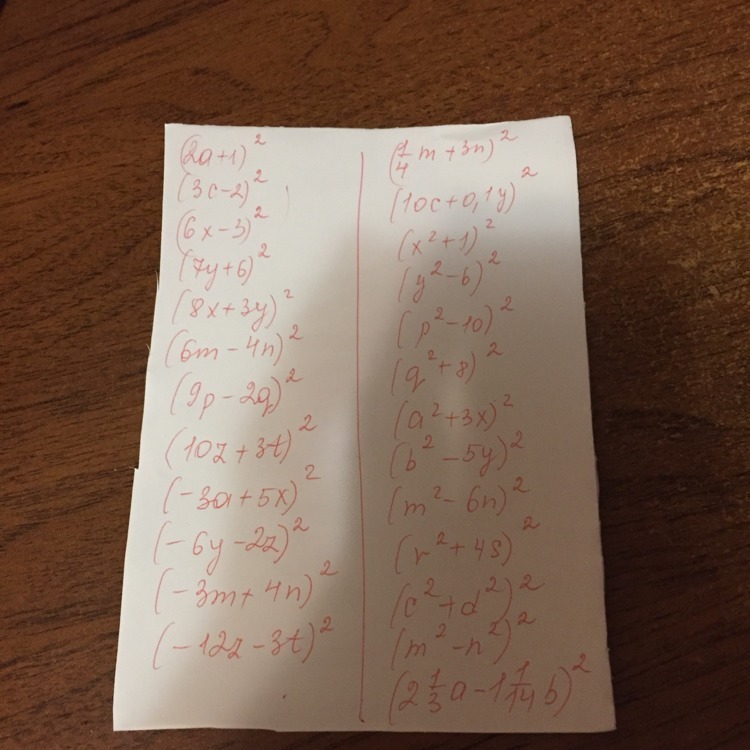 (2a+1)²
(3c-2)²
(6x-3)²
(7y+6)²
(8x+3y)²
(6m-4n)²
(9p-2q)²
(10z+3t)²
(-3a+5x)²
(-6y-2z)²
(-3m+4n)²
(-12z-3t)²
(1/4 m+3n)²
(10c+0,1y)²
(x²+1)²
(y²-6)²
(p²-10)²
(q²+8)²
(a²+3x)²
(b²-5y)²
(m²-6n)²
(r²+4s)²
(c²+d²)²
(m²-n²)²
(2 1/3 a-1 1/14 b)²